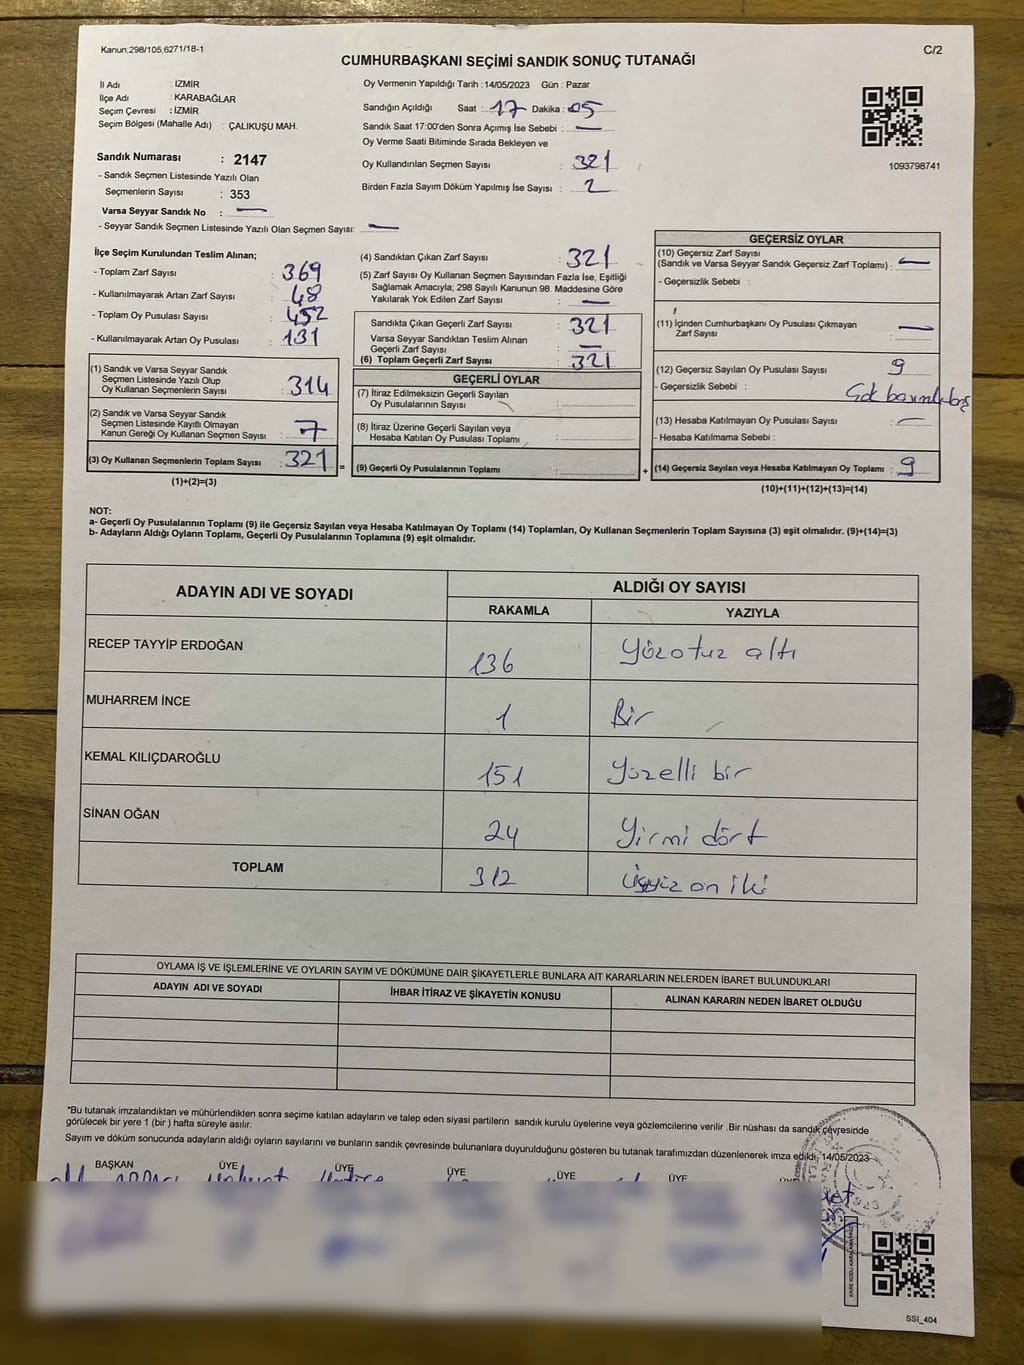 Kanun;298/105,6271/18-1
C/2
CUMHURBAŞKANI SEÇİMİ SANDIK SONUÇ TUTANAĞI
İl Adı : İZMİR
İlçe Adı : KARABAĞLAR
Seçim Çevresi : İZMİR
Seçim Bölgesi (Mahalle Adı) : ÇALIKUŞU MAH.
Sandık Numarası : 2147
- Sandık Seçmen Listesinde Yazılı Olan
Seçmenlerin Sayısı : 353
Varsa Seyyar Sandık No : —
- Seyyar Sandık Seçmen Listesinde Yazılı Olan Seçmen Sayısı: —
Oy Vermenin Yapıldığı Tarih :14/05/2023 Gün : Pazar
Sandığın Açıldığı Saat : 17 Dakika : 05
Sandık Saat 17:00'den Sonra Açımış İse Sebebi : —
Oy Verme Saati Bitiminde Sırada Bekleyen ve
Oy Kullandırılan Seçmen Sayısı : 321
Birden Fazla Sayım Döküm Yapılmış İse Sayısı : 2
1093798741
İlçe Seçim Kurulundan Teslim Alınan;
- Toplam Zarf Sayısı : 369
- Kullanılmayarak Artan Zarf Sayısı : 48
- Toplam Oy Pusulası Sayısı : 452
- Kullanılmayarak Artan Oy Pusulası : 131
(1) Sandık ve Varsa Seyyar Sandık
Seçmen Listesinde Yazılı Olup
Oy Kullanan Seçmenlerin Sayısı : 314
(2) Sandık ve Varsa Seyyar Sandık
Seçmen Listesinde Kayıtlı Olmayan
Kanun Gereği Oy Kullanan Seçmen Sayısı : 7
(3) Oy Kullanan Seçmenlerin Toplam Sayısı : 321 =
(1)+(2)=(3)
(4) Sandıktan Çıkan Zarf Sayısı : 321
(5) Zarf Sayısı Oy Kullanan Seçmen Sayısından Fazla İse, Eşitliği
Sağlamak Amacıyla; 298 Sayılı Kanunun 98. Maddesine Göre
Yakılarak Yok Edilen Zarf Sayısı : —
Sandıkta Çıkan Geçerli Zarf Sayısı : 321
Varsa Seyyar Sandıktan Teslim Alınan
Geçerli Zarf Sayısı : —
(6) Toplam Geçerli Zarf Sayısı : 321
GEÇERLİ OYLAR
(7) İtiraz Edilmeksizin Geçerli Sayılan
Oy Pusulalarının Sayısı :
(8) İtiraz Üzerine Geçerli Sayılan veya
Hesaba Katılan Oy Pusulası Toplamı :
(9) Geçerli Oy Pusulalarının Toplamı : +
GEÇERSİZ OYLAR
(10) Geçersiz Zarf Sayısı
(Sandık ve Varsa Seyyar Sandık Geçersiz Zarf Toplamı) : —
- Geçersizlik Sebebi :
(11) İçinden Cumhurbaşkanı Oy Pusulası Çıkmayan
Zarf Sayısı : —
(12) Geçersiz Sayılan Oy Pusulası Sayısı : 9
- Geçersizlik Sebebi :
(13) Hesaba Katılmayan Oy Pusulası Sayısı : —
- Hesaba Katılmama Sebebi :
(14) Geçersiz Sayılan veya Hesaba Katılmayan Oy Toplamı : 9
(10)+(11)+(12)+(13)=(14)
NOT:
a- Geçerli Oy Pusulalarının Toplamı (9) ile Geçersiz Sayılan veya Hesaba Katılmayan Oy Toplamı (14) Toplamları, Oy Kullanan Seçmenlerin Toplam Sayısına (3) eşit olmalıdır. (9)+(14)=(3)
b- Adayların Aldığı Oyların Toplamı, Geçerli Oy Pusulalarının Toplamına (9) eşit olmalıdır.
ADAYIN ADI VE SOYADI
ALDIĞI OY SAYISI
RAKAMLA YAZIYLA
RECEP TAYYİP ERDOĞAN 136 Yüzotuz altı
MUHARREM İNCE 1 Bir
KEMAL KILIÇDAROĞLU 151 Yüzelli bir
SİNAN OĞAN 24 Yirmi dört
TOPLAM 312 Üçyüz on iki
OYLAMA İŞ VE İŞLEMLERİNE VE OYLARIN SAYIM VE DÖKÜMÜNE DAİR ŞİKAYETLERLE BUNLARA AİT KARARLARIN NELERDEN İBARET BULUNDUKLARI
ADAYIN ADI VE SOYADI İHBAR İTİRAZ VE ŞİKAYETİN KONUSU ALINAN KARARIN NEDEN İBARET OLDUĞU
*Bu tutanak imzalandıktan ve mühürlendikten sonra seçime katılan adayların ve talep eden siyasi partilerin sandık kurulu üyelerine veya gözlemcilerine verilir .Bir nüshası da sandık çevresinde
görülecek bir yere 1 (bir ) hafta süreyle asılır.
Sayım ve döküm sonucunda adayların aldığı oyların sayılarını ve bunların sandık çevresinde bulunanlara duyurulduğunu gösteren bu tutanak tarafımızdan düzenlenerek imza edildi, 14/05/2023
BAŞKAN ÜYE ÜYE ÜYE ÜYE ÜYE
SSI_404